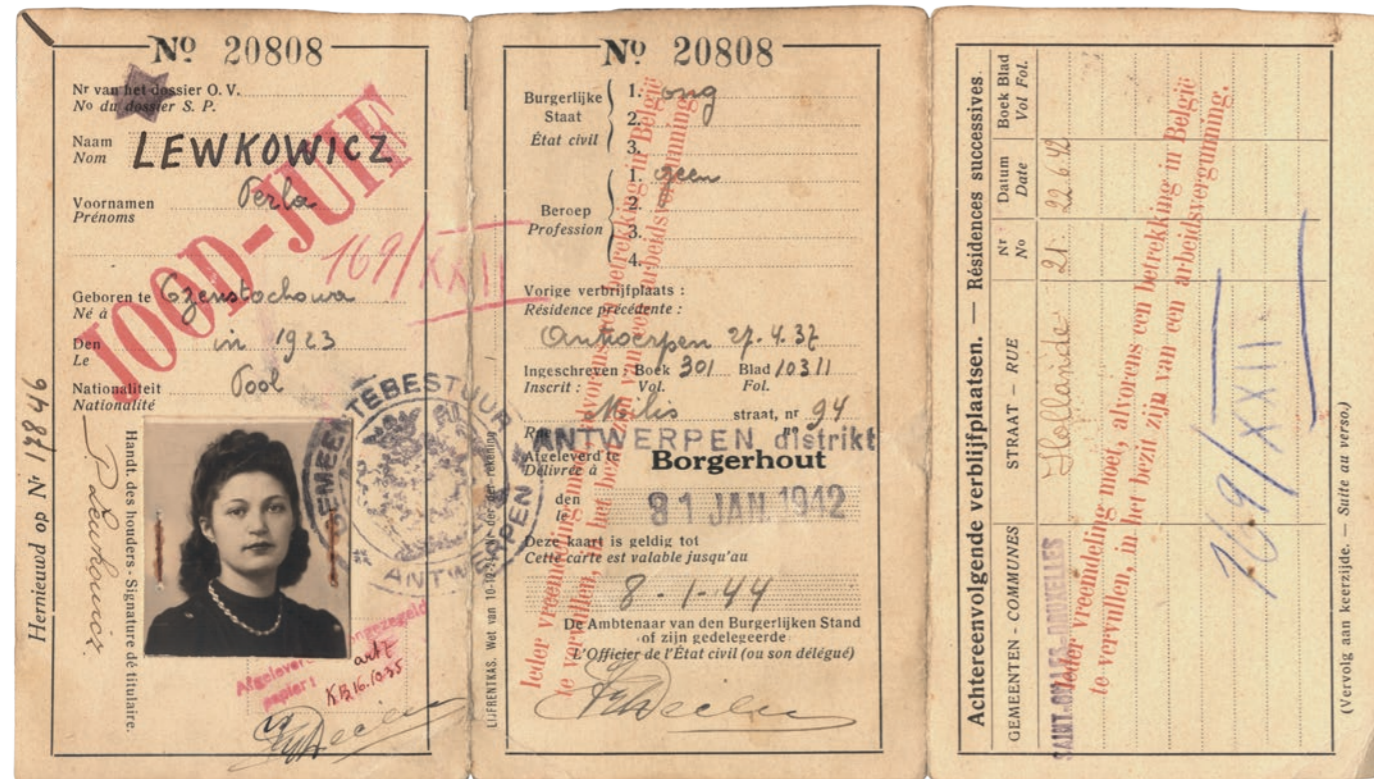 Nº 20808
Nr van het dossier O. V.
No du dossier S. P.
JOOD-JUIF
Naam
Nom
LEWKOWICZ
Voornamen
Prénoms
Perla
169/XXII
Geboren te
Né à
Czenstochowa
Den
Le
in 1923
Nationaliteit
Nationalité
Pool
Hernieuwd op Nr 17846
Handt. des houders - Signature de titulaire.
P Lewkowicz.
GEMEENTEBESTUUR
ANTWERPEN
Afgeleverd
papier!
K.B. 16.10.35
Nº 20808
Burgerlijke
Staat
État civil
1. ong
2.
3.
Beroep
Profession
1. geen
2.
3.
4.
Vorige verbrijfplaats :
Résidence précédente :
Antwerpen 27.4.37
Ingeschreven : Boek 301 Blad 10311
Inscrit : Vol. Fol.
Milis straat, nr 94
ANTWERPEN distrikt
Afgeleverd te
Délivrée à
Borgerhout
den
le
31 JAN 1942
Deze kaart is geldig tot
Cette carte est valable jusqu'au
8-1-44
De Ambtenaar van den Burgerlijken Stand
of zijn gedelegeerde
L'Officier de l'État civil (ou son délégué)
Ieder vreemdeling moet, alvorens een betrekking in België
te vervullen, in het bezit zijn van een arbeidsvergunning.
Achtereenvolgende verblijfplaatsen. — Résidences successives.
GEMEENTEN - COMMUNES
STRAAT - RUE
Nr
No
Datum
Date
Boek Blad
Vol Fol.
Hollande 21. 22 6 42
Ieder vreemdeling moet, alvorens een betrekking in België
te vervullen, in het bezit zijn van een arbeidsvergunning.
169/XXII
(Vervolg aan keerzijde. — Suite au verso.)